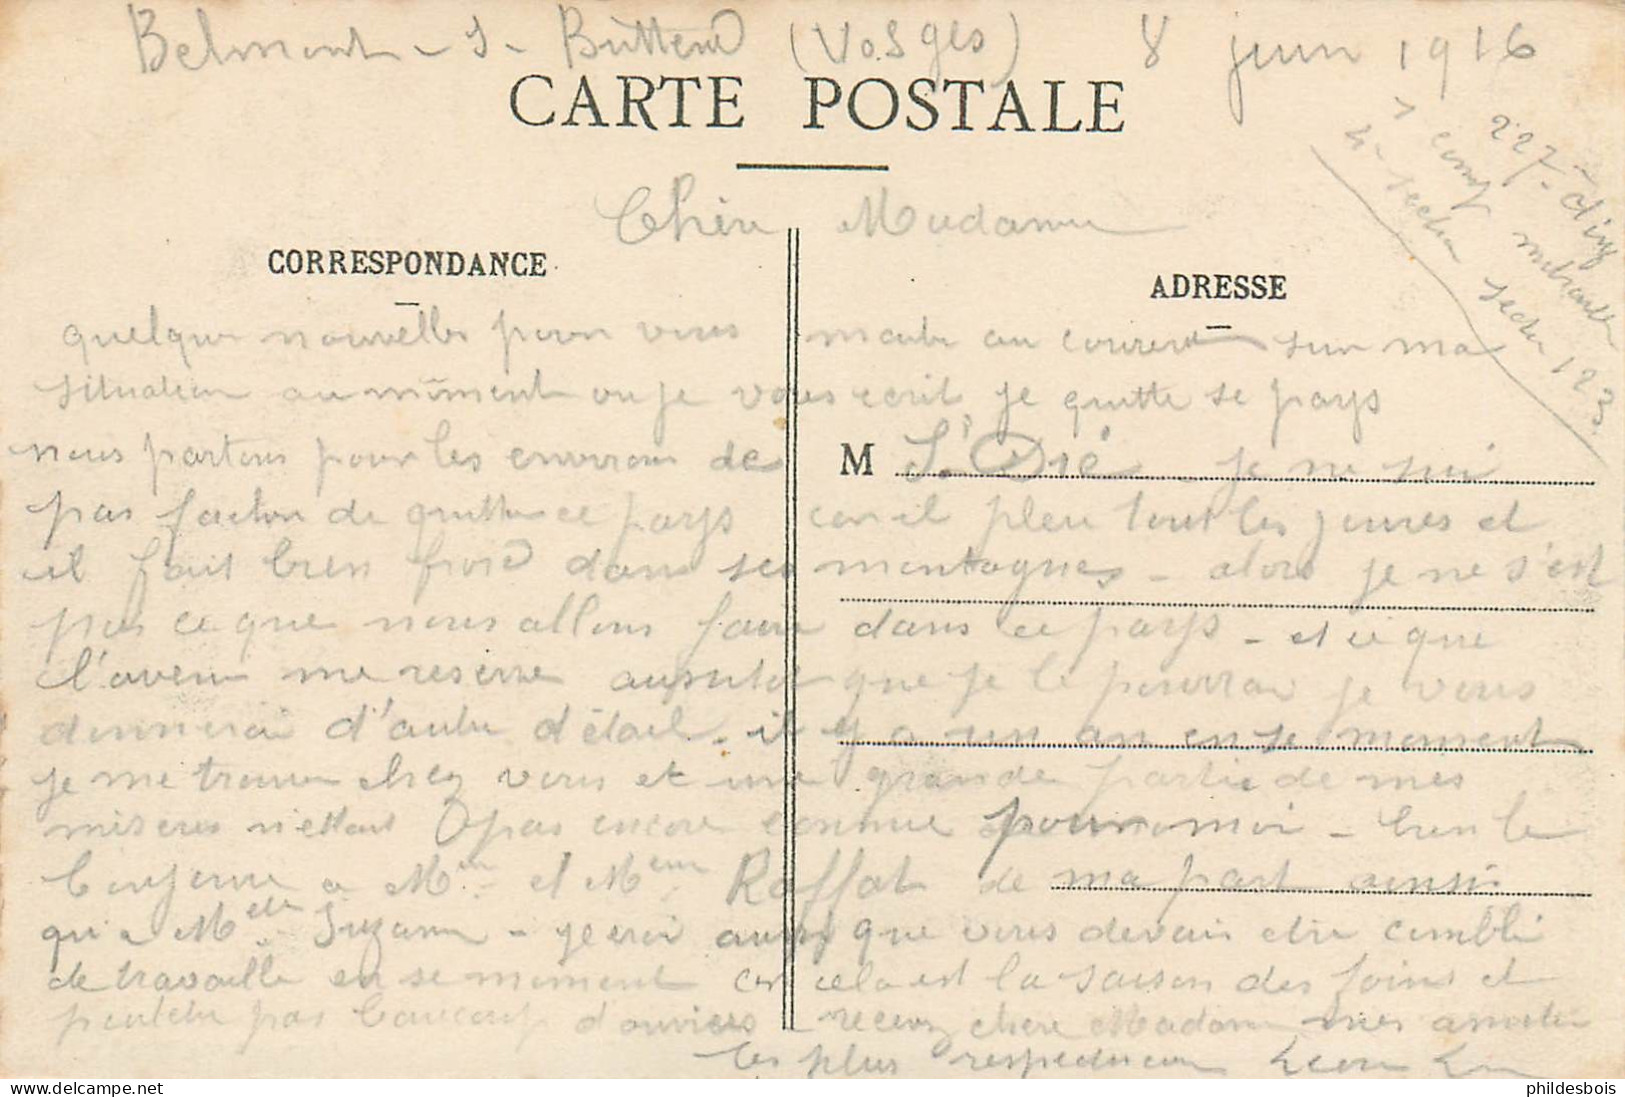 Belmont - s - Buttend (Vosges) 8 juin 1916
CARTE POSTALE
227 - d'inf
1 comp mitrailler
4 - section secteur 123
Chère Madame
CORRESPONDANCE
ADRESSE
quelque nouvelles pour vous maitre au courent sur ma
situation au moment ou je vous ecrit je quitte se pays
nous partons pour les environs de
M S.t Dié je ne sui
pas facton de quitter ce pays car il pleu tout les joures et
il fait bien froid dans ses montagnes - alors je ne s'est
pas ce que nous allons faire dans ce pays - et ce que
l'avenir me reserve aussitot que je le pourrai je vous
donnerai d'autre détail - il y a un an en se moment
je me trouve chez vous et une grande partie de mes
miseres n'ettait pas encore connue pour moi - bien le
bonjour a Mr et Mme Raffat de ma part ainsi
qu'a Melle Suzanne - je croi aussi que vous devais etre comblé
de travaille en se moment car cela est la saison des foins et
peutetre pas beaucoup d'ouvriers - recevez chere Madame mes amities
les plus respectueuse Leon
phildesbois